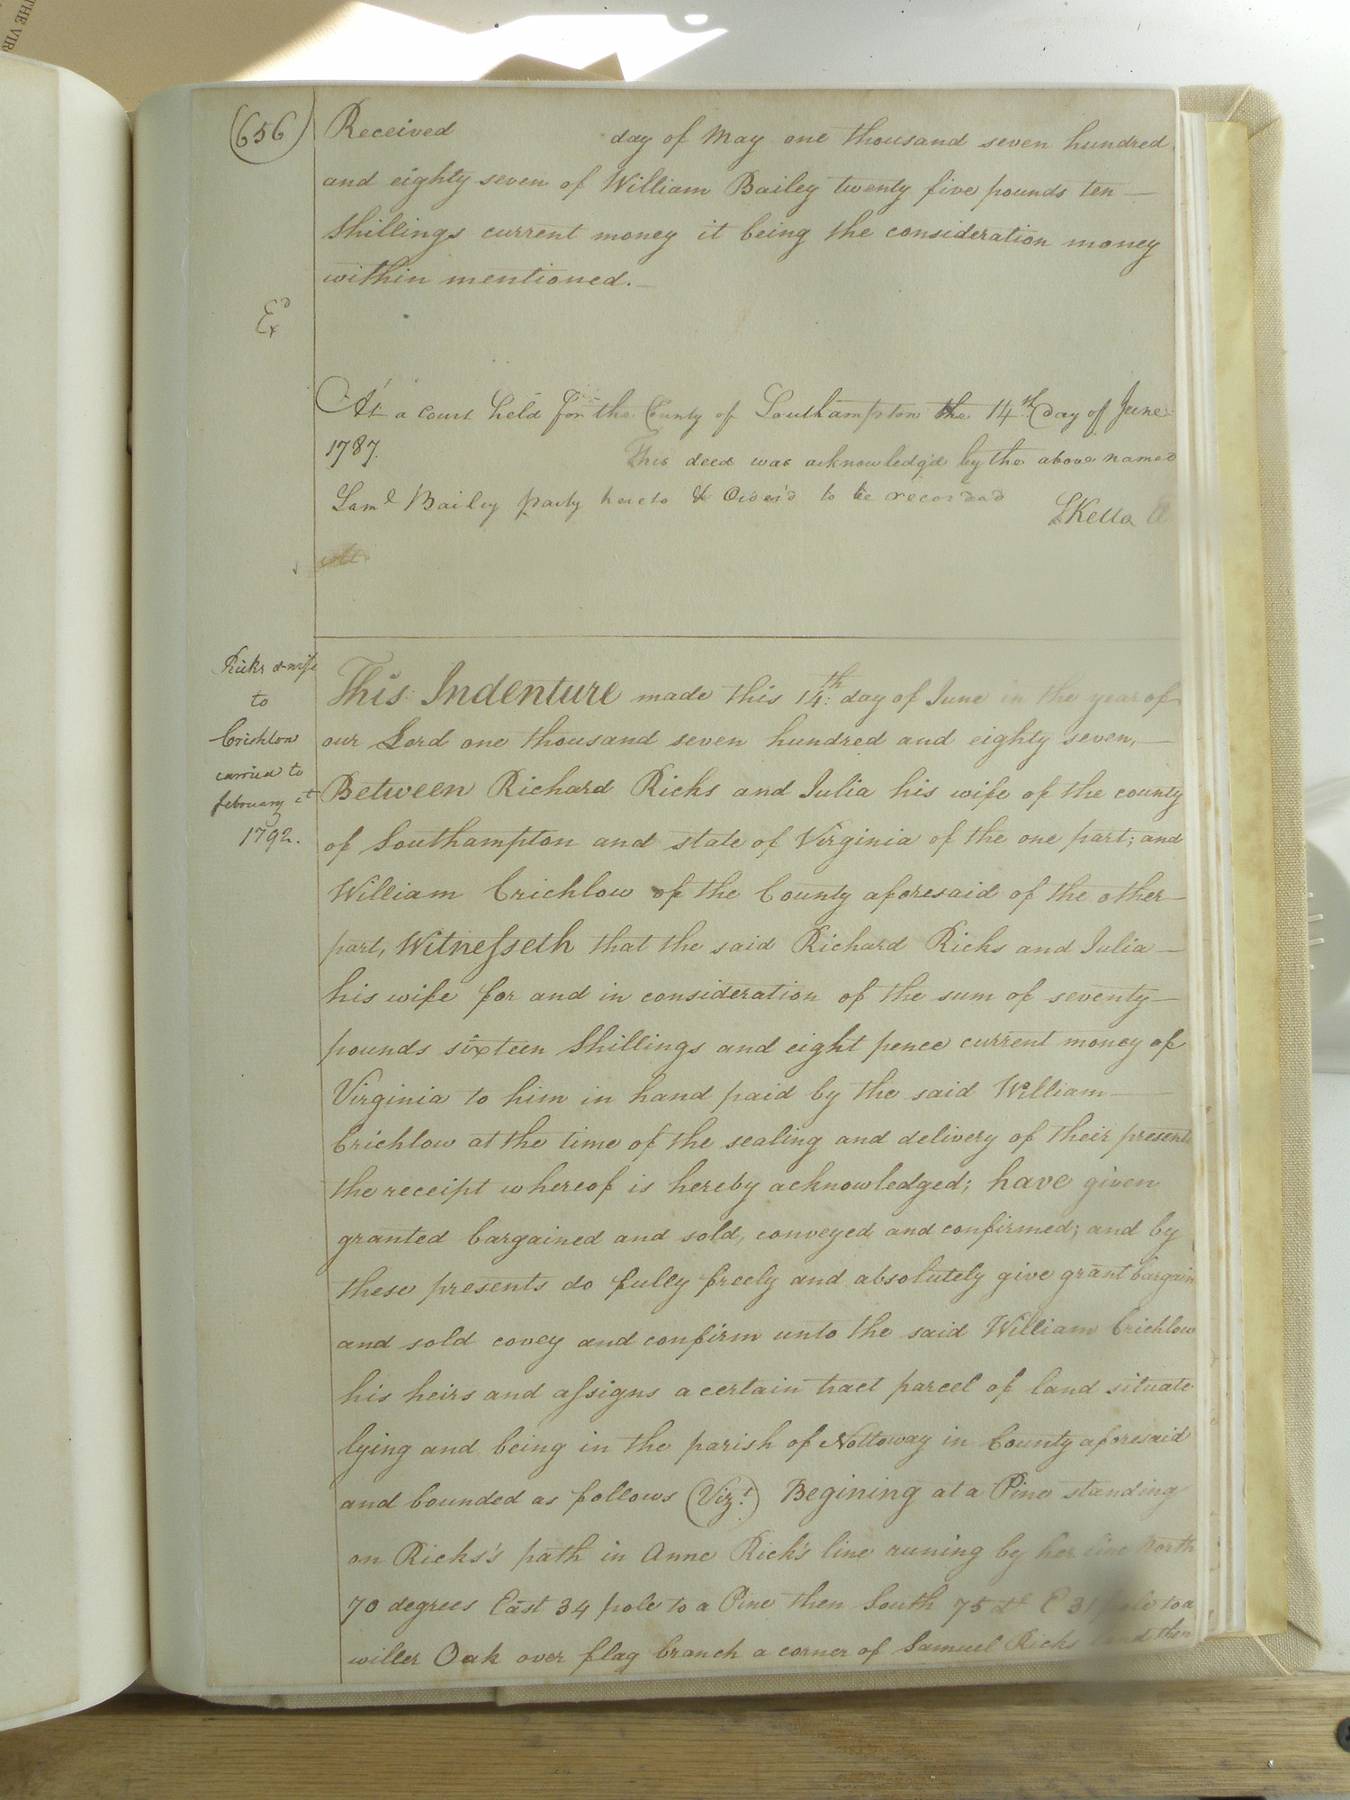 THE VIR
(656)
Received day of May one thousand seven hundred
and eighty seven of William Bailey twenty five pounds ten —
Shillings current money it being the consideration money
within mentioned. —
Exd
At a court held for the County of Southampton the 14th day of June
1787. This deed was acknowledg'd by the above named
Saml Bailey party hereto & Order'd to be recorded
SKello
Ricks & wife
to
Crichlow
carried to
february ct
1792.
This Indenture made this 14th: day of June in the year of
our Lord one thousand seven hundred and eighty seven, —
Between Richard Ricks and Julia his wife of the county
of Southampton and state of Virginia of the one part; and
William Crichlow of the County aforesaid of the other —
part, Witneſseth that the said Richard Ricks and Julia —
his wife for and in consideration of the sum of seventy —
pounds sixteen Shillings and eight pence current money of
Virginia to him in hand paid by the said William —
Crichlow at the time of the sealing and delivery of their presents
the receipt whereof is hereby acknowledged; have given
granted bargained and sold, conveyed and confirmed; and by
these presents do fully freely and absolutely give grant bargain
and sold covey and confirm unto the said William Crichlow
his heirs and aſsigns a certain tract parcel of land situate
lying and being in the parish of Nottoway in County aforesaid
and bounded as follows (Vizt.) Begining at a Pine standing
on Ricks's path in Anne Rick's line runing by her line North
70 degrees East 34 pole to a Pine then South 75 dg E 31 pole to a
willer Oak over flag branch a corner of Samuel Ricks land then